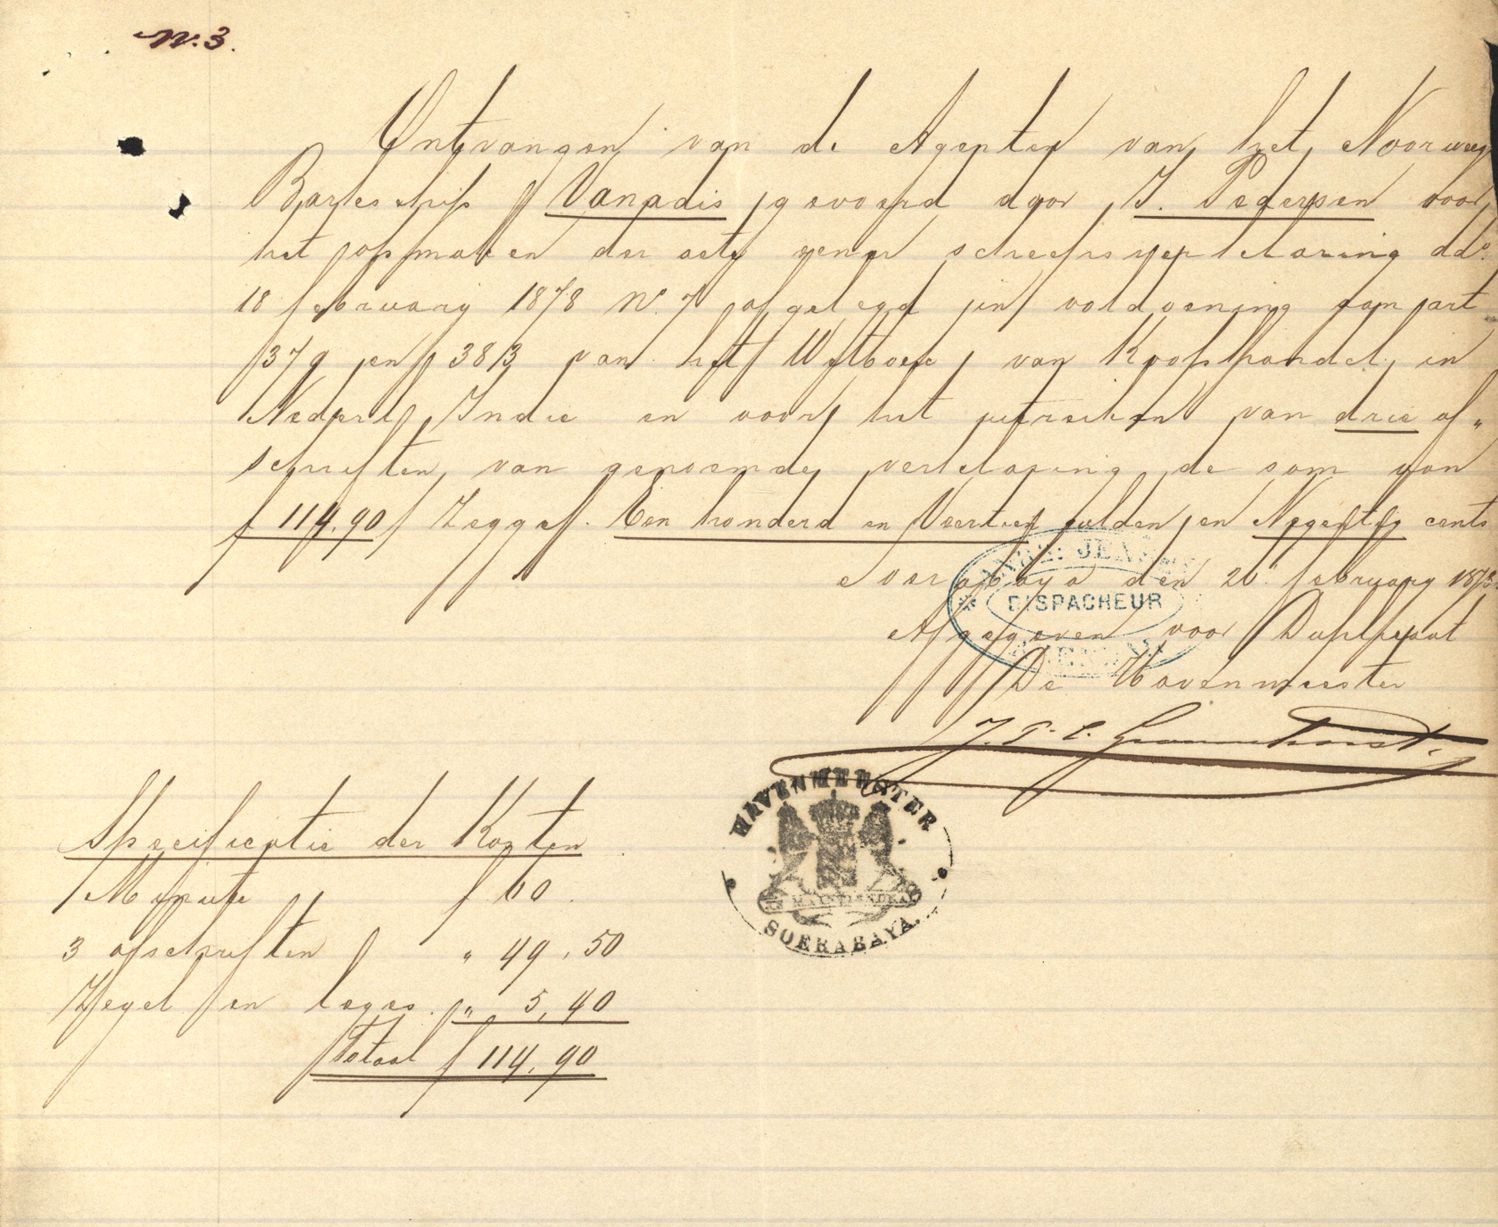 N. 3.
Ontvangen van de Agenten van het Noorweeg
Barkschip Vanadis gevoerd door J. Pedersen voor
het opmaken der acte eener scheepsverklaring dd.
18 february 1878 N. 7 afgelegd in voldoening aan art
379 en 383 van het Wetboek van Koophandel in
Nederl. Indie en voor het uitreiken van drie af„
schriften van genoemde verklaring de som van
f 114.90 Zegge. Een honderd en Veertien gulden en Negentig cents
Soerabaya den 20 february 1878.
Afgegeven voor Duplicaat
De Havenmeester
J. P. C.
JENS
DISPACHEUR
HAVENMEESTER
SOERABAYA.
Specificatie der Kosten
Minute f 60.
3 afschriften „ 49.50
Zegel en leges. „ 5,40
Totaal f 114.90